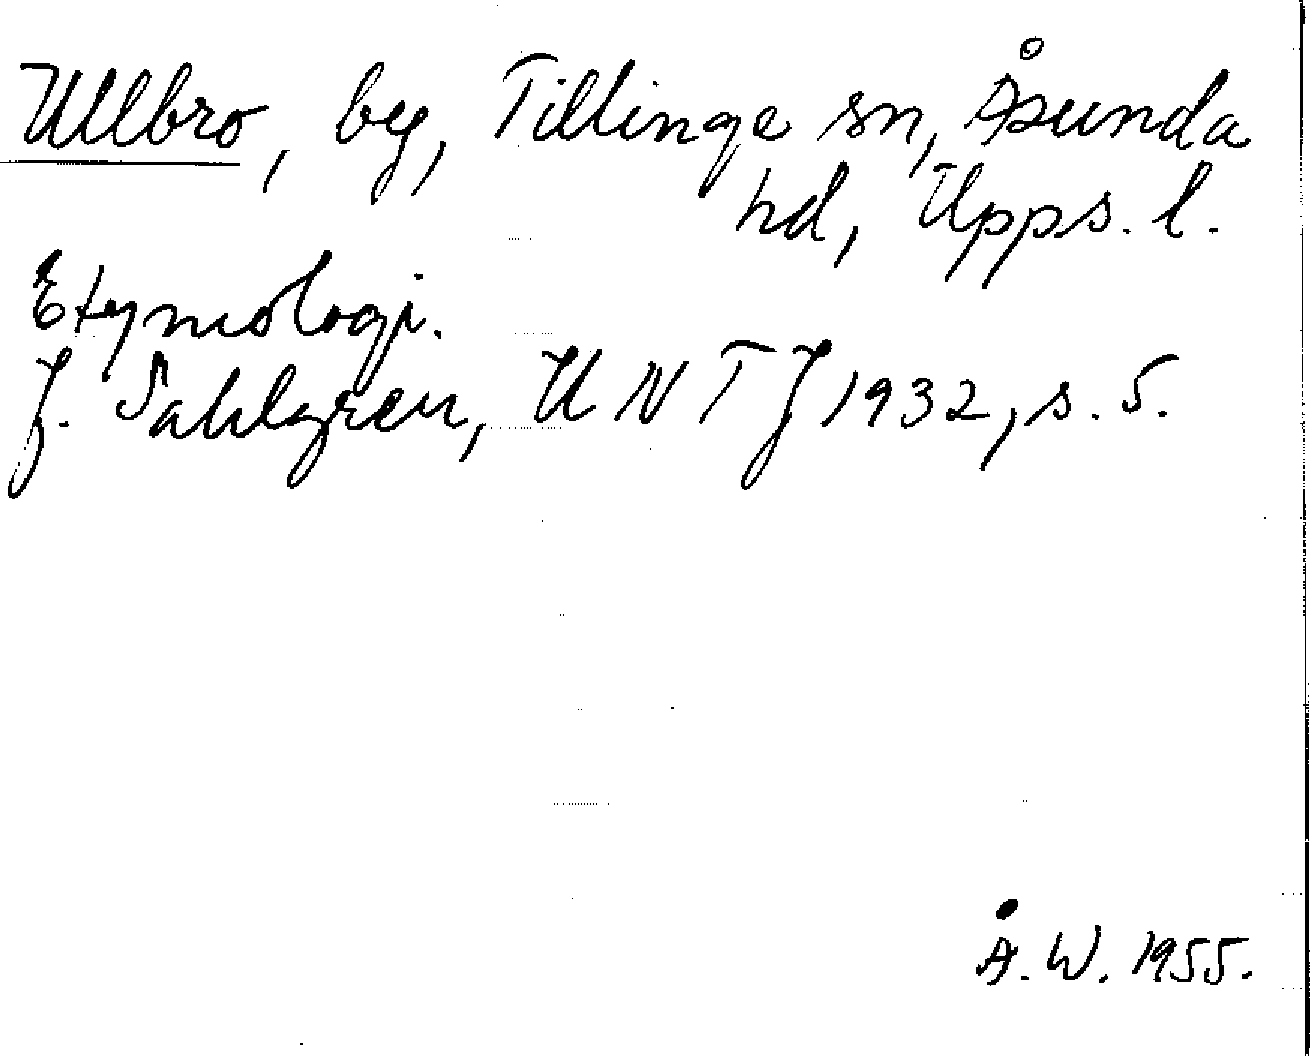 Ullbro, by, Tillinge sn, Åsunda
hd, Upps. l.
Etymologi.
J. Sahlgren, UNTJ 1932, s. 5.
Å. W. 1955.